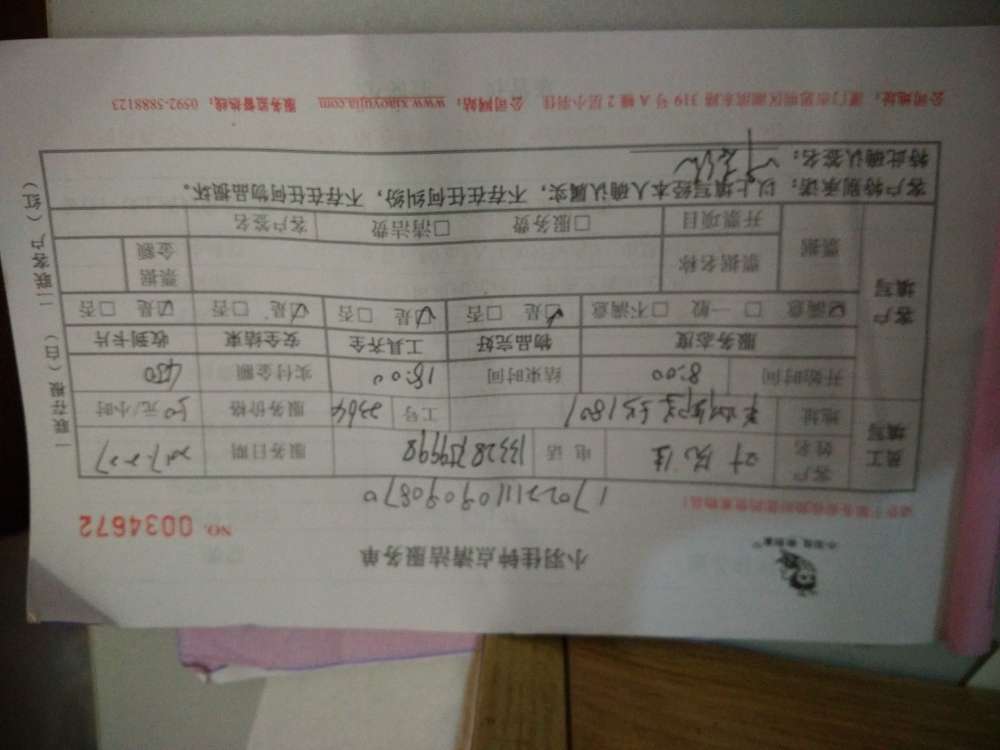 小羽佳 创洁家
小羽佳钟点清洁服务单
NO. 0034672
请你于服务前收拾好您的贵重物品！
1702211109090870
员工填写
客户姓名 叶 佳 电话 13328759998 服务日期
地址 1801 工号 2364 服务价格 50 元/小时
客户填写
开始时间 8:00 结束时间 18:00 实付金额 450
服务态度 物品完好 工具齐全 安全结束 收到卡片
☑满意 □一般 □不满意 ☑是 □否 ☑是 □否 ☑是 □否 ☑是 □否
票据 票据名称 票据金额
开票项目 □服务费 □清洁费 客户签名
客户特别承诺：以上填写经本人确认属实，不存在任何纠纷，不存在任何物品损坏。
特此确认签名：
公司地址：厦门市思明区湖滨东路 319 号 A 幢 2 层小羽佳 公司网站：www.xiaoyujia.com 服务监督热线：0592-5888123
一联存根（白） 二联客户（红）